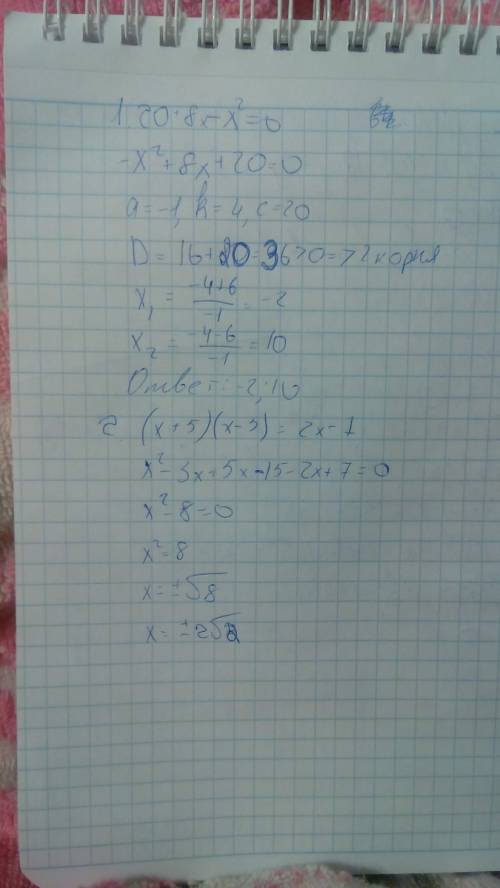 1. 20+8x-x²=0
-x²+8x+20=0
a=-1, k=4, c=20
D=16+20=36>0=>2 корня
x₁ = (-4+6)/(-1) = -2
x₂ = (-4-6)/(-1) = 10
Ответ: -2; 10
2 (x+5)(x-3) = 2x-7
x²-3x+5x-15-2x+7=0
x²-8=0
x²=8
x=±√8
x=±2√2